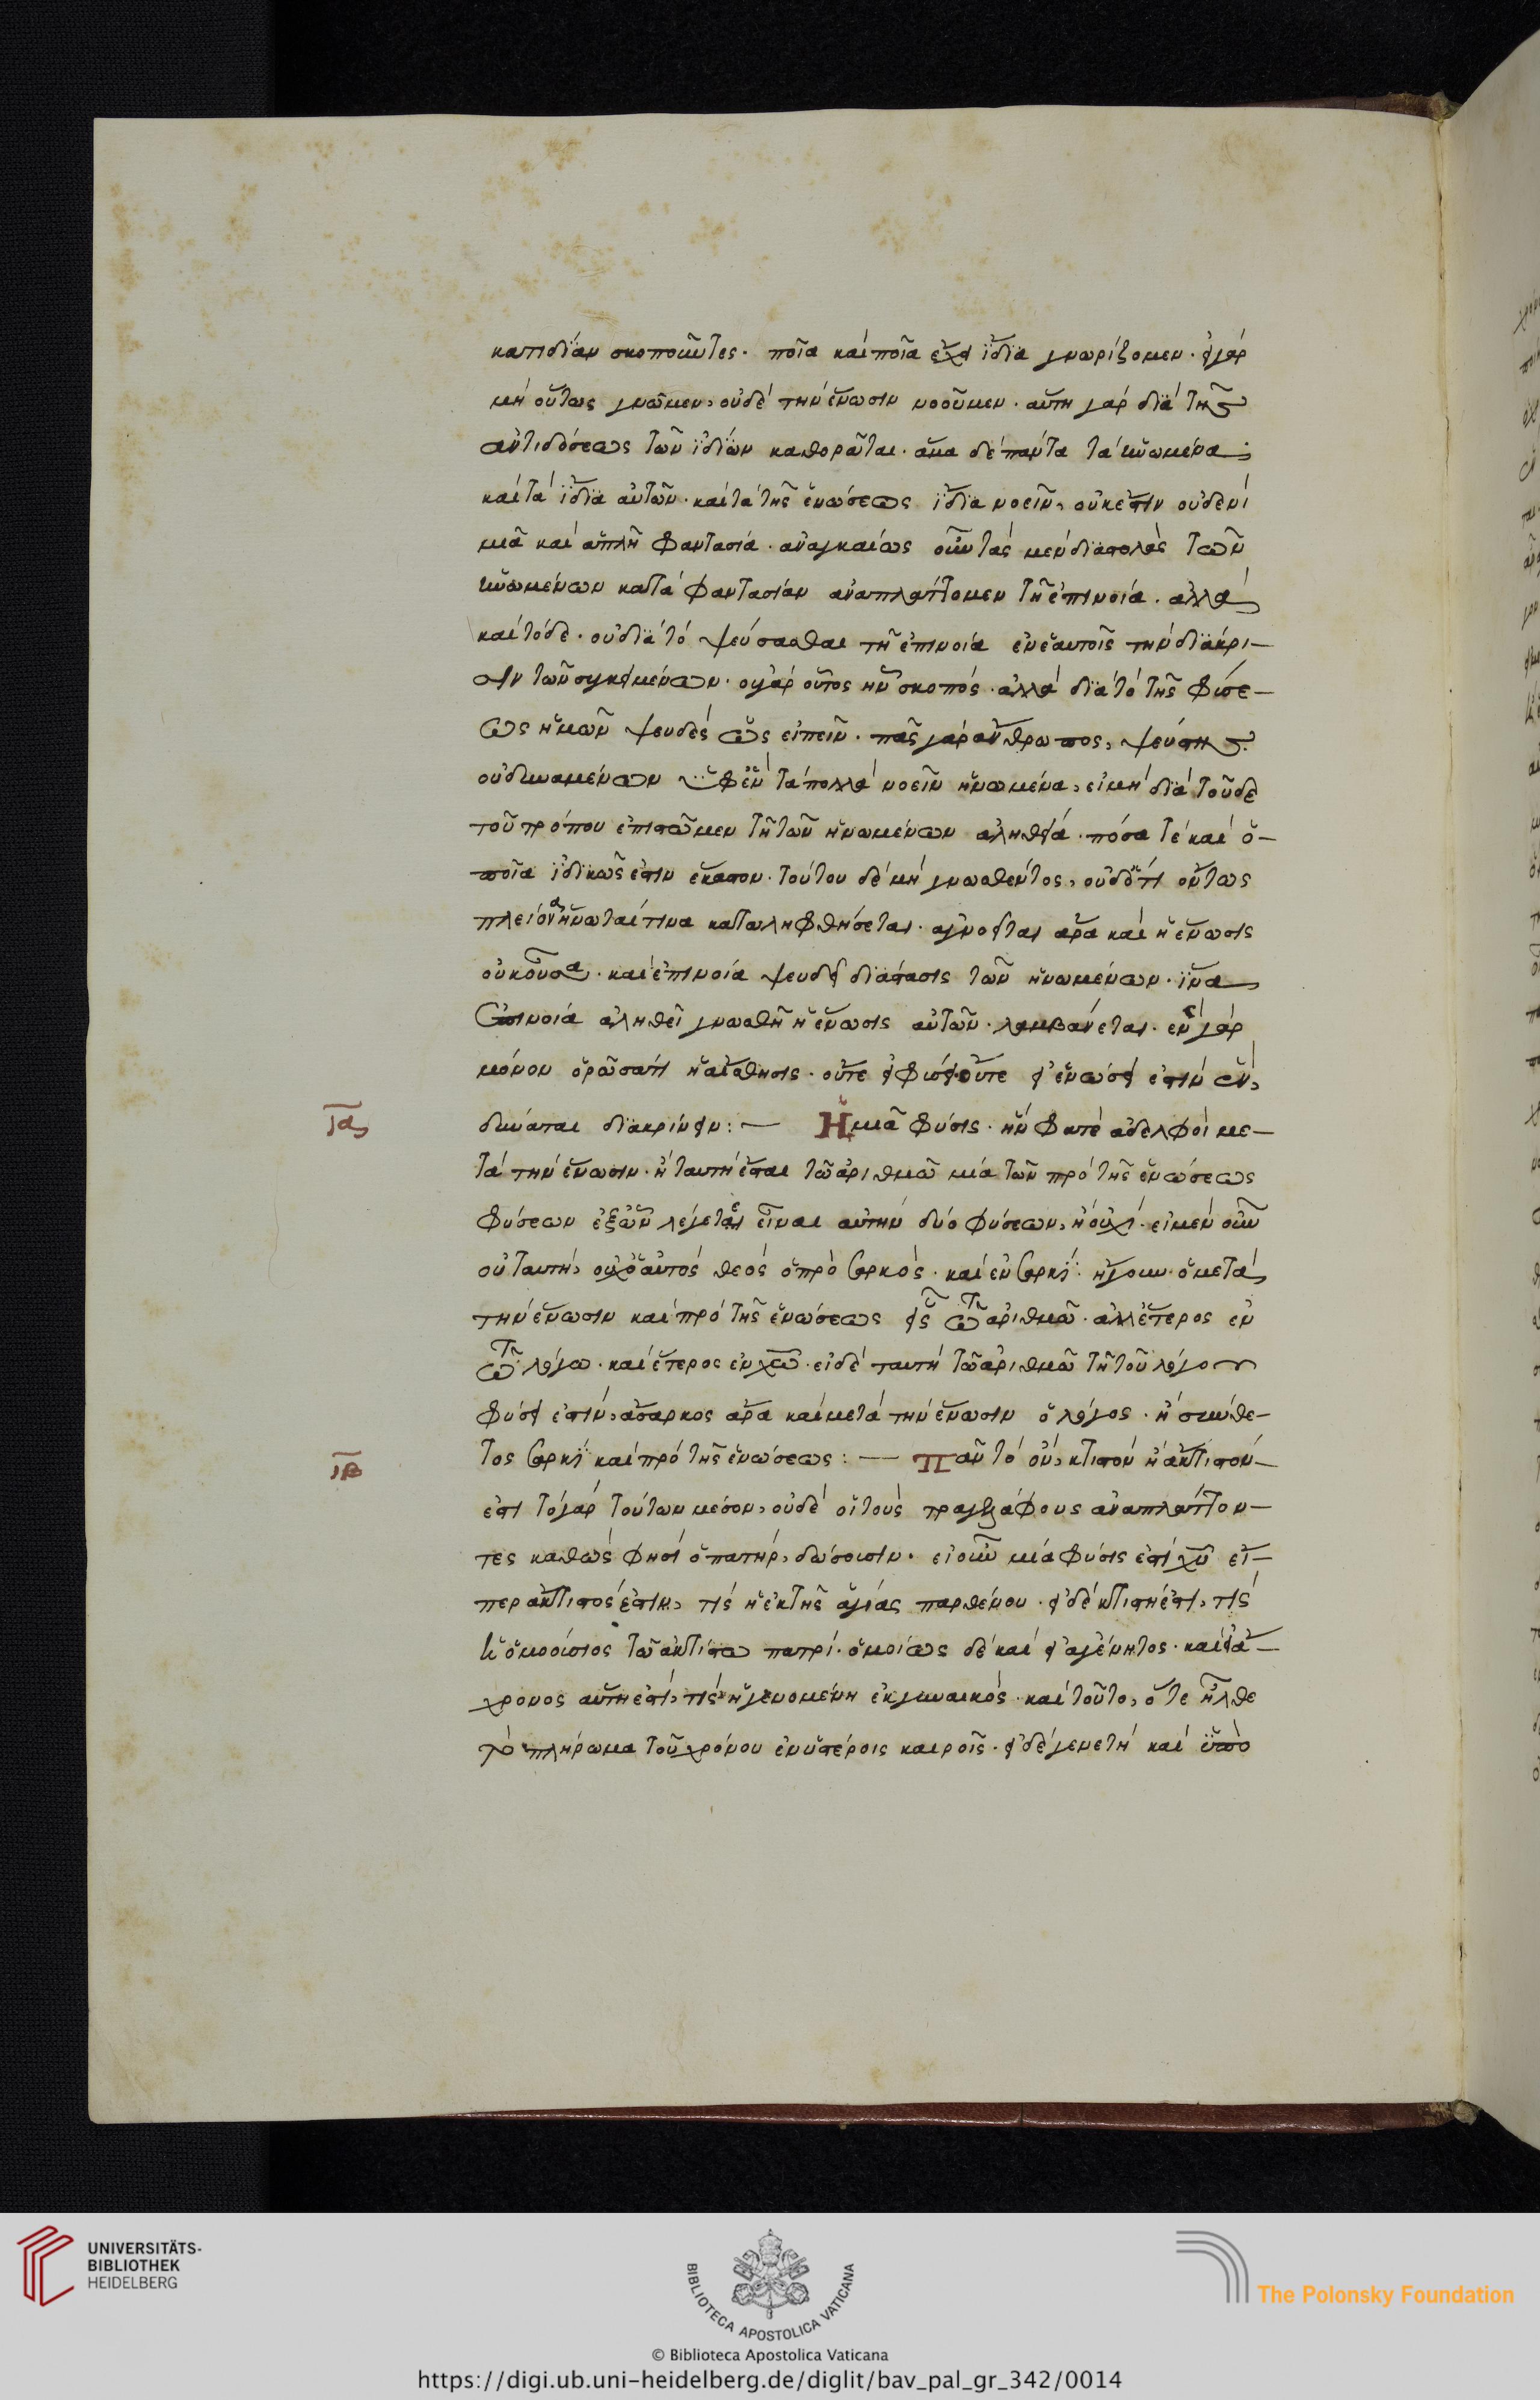 κατιδίαν σκοποῦντες. ποῖα καὶ ποῖα ἔχει ἴδια γνωρίζομεν. εἰ γὰρ
μὴ οὕτως γνῶμεν, οὐδὲ τὴν ἕνωσιν νοοῦμεν. αὕτη γὰρ διὰ τῆς
ἀντιδόσεως τῶν ἰδίων καθορᾶται. ἅμα δὲ πάντα τὰ ἡνωμένα,
καὶ τὰ ἴδια αὐτῶν. καὶ τὰ τῆς ἑνώσεως ἴδια νοεῖν, οὐκ ἔστιν οὐδενὶ
μιᾶ καὶ ἁπλῆ φαντασία. ἀναγκαίως οὖν τὰς μὲν διαστολὰς τῶν
ἡνωμένων κατὰ φαντασίαν ἀναπλάττομεν τῆ ἐπινοία. ἀλλὰ
καὶ τόδε. οὐ διὰ τὸ ψεύσασθαι τῆ ἐπινοία ἐν ἑαυτοῖς τὴν διάκρι-
σιν τῶν συγκειμένων. οὐ γὰρ οὗτος ἦν σκοπός. ἀλλὰ διὰ τὸ τῆς φύσε-
ως ἡμῶν ψευδὲς ὡς εἰπεῖν. πᾶς γὰρ ἄνθρωπος, ψεύστης.
οὐ δυναμένων ὑφἓν τὰ πολλὰ νοεῖν ἡνωμένα, εἰ μὴ διὰ τοῦδε
τοῦ τρόπου ἐπιστῶμεν τῆ τῶν ἡνωμένων ἀληθεία. πόσα τὲ καὶ ὁ-
ποῖα ἰδικῶς ἐστὶν ἕκαστον. τούτου δὲ μὴ γνωσθέντος, οὐδότι οὕτως
πλείονα ἥνωταί τινα καταληφθήσεται. ἀγνοεῖται ἄρα καὶ ἡ ἕνωσις
οὐκοῦν. καὶ ἐπινοία ψευδεῖ διάστασις τῶν ἡνωμένων. ἵνα
ἐπινοία ἀληθεῖ γνωσθῆ ἡ ἕνωσις αὐτῶν. λαμβάνεται. ἓν γὰρ
μόνον ὁρῶσά τι ἡ αἴσθησις. οὔτε εἰ φύσει οὔτε εἰ ἑνώσει ἐστὶν ἓν,
ια δύναται διακρίνειν: — Ἡ μία φύσις. ἣν φατὲ ἀδελφοὶ με-
τὰ τὴν ἕνωσιν. ἢ ταυτή ἐσται τῶ ἀριθμῶ μία τῶν πρὸ τῆς ἑνώσεως
φύσεων ἐξ ὧν λέγεται εἶναι αὐτὴν δύο φύσεων, ἢ οὐχί. εἰ μὲν οὖν
οὐ ταυτὴ, οὐχὁ αὐτὸς θεὸς ὁ πρὸ σαρκὸς. καὶ ἐν σαρκὶ. ἤγουν. ὁ μετὰ
τὴν ἕνωσιν καὶ πρὸ τῆς ἑνώσεως εἷς τῶ ἀριθμῶ. ἀλλἕτερος ἐν
τῶ λόγω. καὶ ἕτερος ἐν χ̅ω̅. εἰ δὲ ταυτὴ τῶ ἀριθμῶ τῆ τοῦ λόγου
φύσει ἐστὶν, ἄσαρκος ἄρα καὶ μετὰ τὴν ἕνωσιν ὁ λόγος. ἢ σύνθε-
ιβ τος σαρκὶ καὶ πρὸ τῆς ἑνώσεως: — Πᾶν τὸ ὂν, κτιστὸν ἢ ἄκτιστόν
ἐστι τὸ γὰρ τούτων μέσον, οὐδὲ οἱ τοὺς τραγελάφους ἀναπλάττον-
τες καθὼς φησὶ ὁ πατὴρ, δώσουσιν. εἰ οὖν μία φύσις ἐστὶ χ̅υ̅ εἴ-
περ ἄκτιστός ἐστιν, τίς ἡ ἐκ τῆς ἁγίας παρθένου. εἰ δὲ κτιστή ἐστι, τίς
ἡ ὁμοούσιος τῶ ἀκτίστω πατρί. ὁμοίως δὲ καὶ εἰ ἀγένητος. καὶ εἰ ἄ-
χρονος αὕτη ἐστὶ, τίς ἡ γενομένη ἐκ γυναικὸς. καὶ τοῦτο, ὅτε ἦλθε
τὸ πλήρωμα τοῦ χρόνου ἐν ὑστέροις καιροῖς. εἰ δὲ γενετὴ καὶ ὑπὸ
UNIVERSITÄTS-
BIBLIOTHEK
HEIDELBERG
BIBLIOTECA APOSTOLICA VATICANA
The Polonsky Foundation
© Biblioteca Apostolica Vaticana
https://digi.ub.uni-heidelberg.de/diglit/bav_pal_gr_342/0014